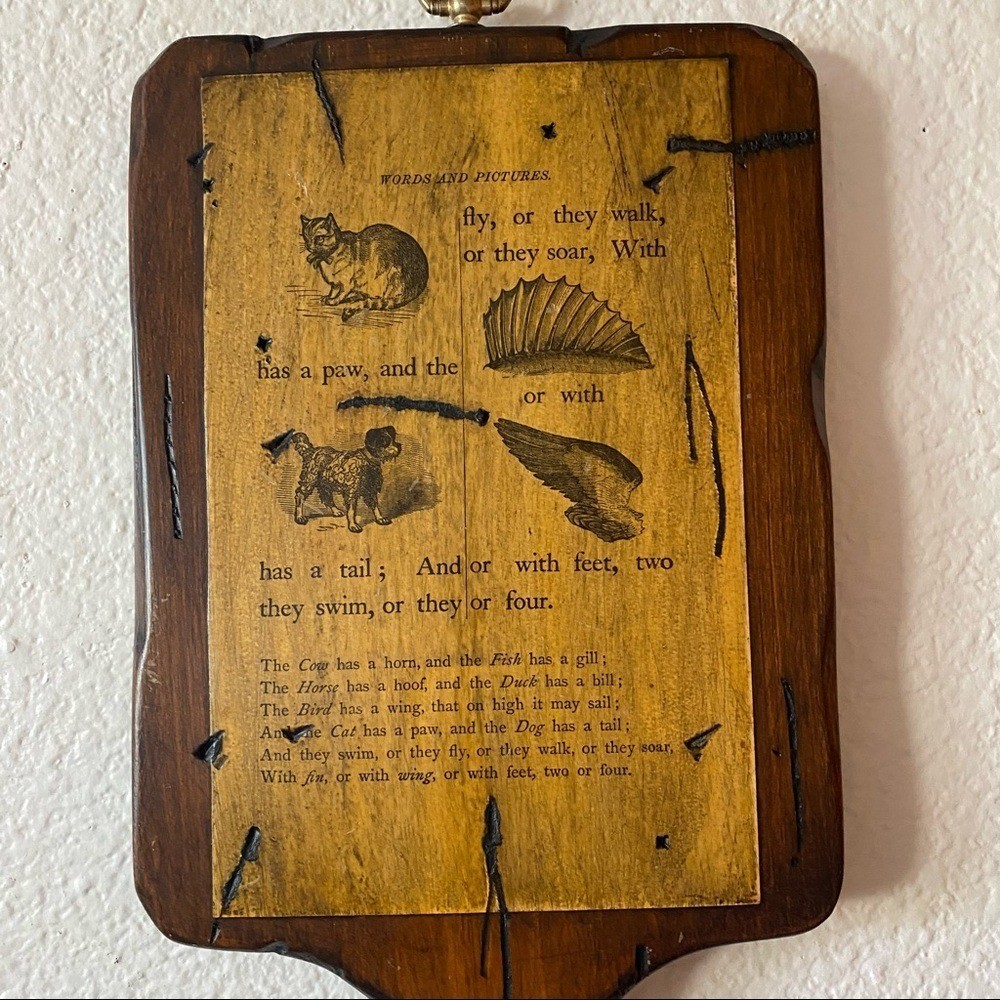 WORDS AND PICTURES.
has a paw, and the
has a tail ; And
they swim, or they
fly, or they walk,
or they soar, With
or with
or with feet, two
or four.
The Cow has a horn, and the Fish has a gill ;
The Horse has a hoof, and the Duck has a bill ;
The Bird has a wing, that on high it may sail ;
And the Cat has a paw, and the Dog has a tail ;
And they swim, or they fly, or they walk, or they soar,
With fin, or with wing, or with feet, two or four.